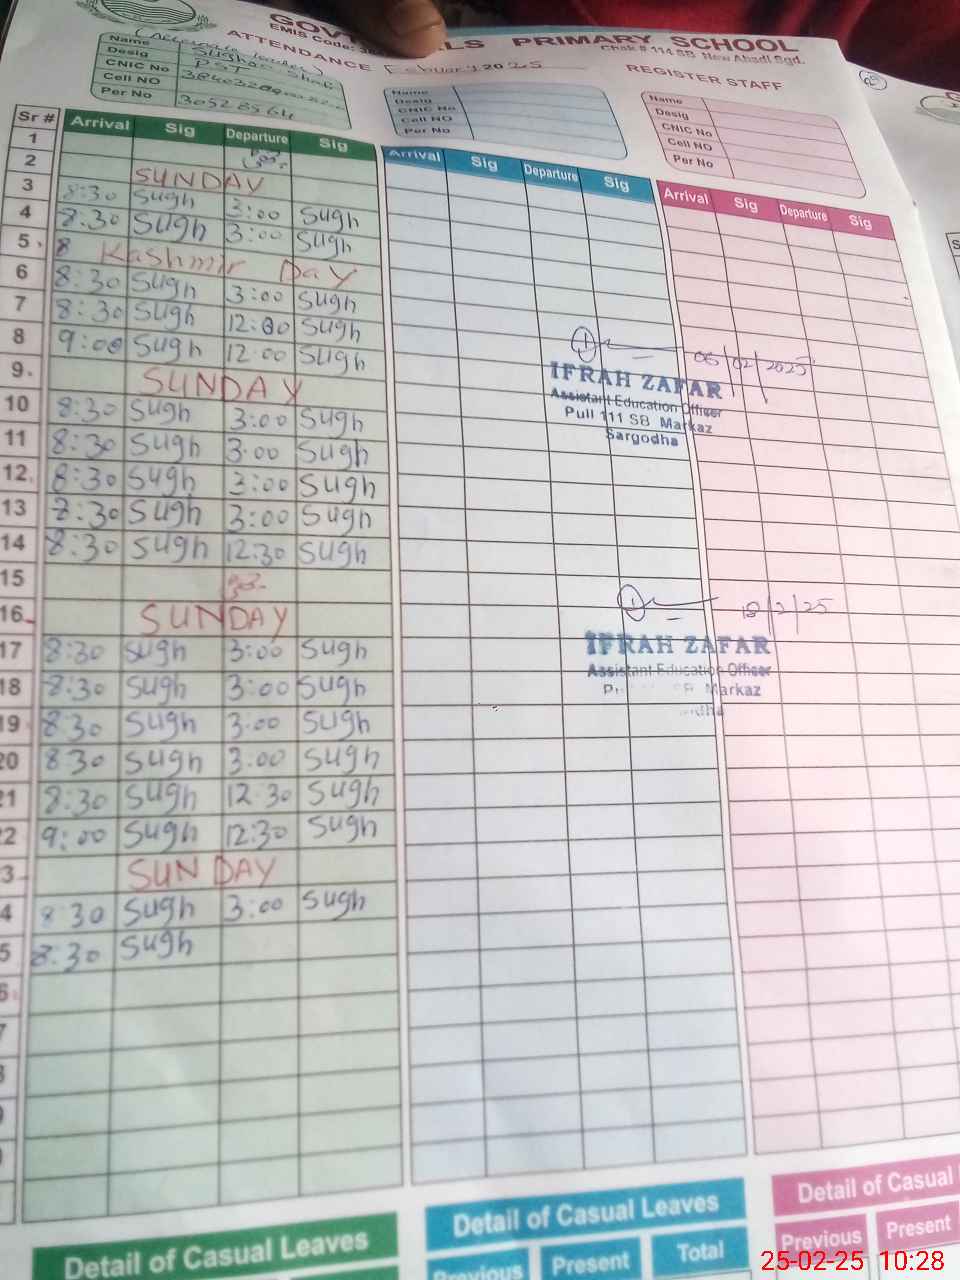 GOVT. LS PRIMARY SCHOOL
EMIS Code: Chak # 114 SB New Abadi Sgd.
ATTENDANCE February 2025 REGISTER STAFF
Name
Desig PST
CNIC No
Cell NO
Per No 30528564
Name
Desig
CNIC No
Cell NO
Per No
Name
Desig
CNIC No
Cell NO
Per No
Sr # Arrival Sig Departure Sig Arrival Sig Departure Sig Arrival Sig Departure Sig
1
2 SUNDAY
3 8:30 Sugh 3:00 Sugh
4 8:30 Sugh 3:00 Sugh
5 8 Kashmir Day
6 8:30 Sugh 3:00 Sugh
7 8:30 Sugh 12:00 Sugh
8 9:00 Sugh 12:00 Sugh
9 SUNDAY
10 8:30 Sugh 3:00 Sugh
11 8:30 Sugh 3:00 Sugh
12 8:30 Sugh 3:00 Sugh
13 8:30 Sugh 3:00 Sugh
14 8:30 Sugh 12:30 Sugh
15
16 SUNDAY
17 8:30 Sugh 3:00 Sugh
18 8:30 Sugh 3:00 Sugh
19 8:30 Sugh 3:00 Sugh
20 8:30 Sugh 3:00 Sugh
21 8:30 Sugh 12:30 Sugh
22 9:00 Sugh 12:30 Sugh
3 SUNDAY
4 8:30 Sugh 3:00 Sugh
5 8:30 Sugh
06/02/2025
IFRAH ZAFAR
Assistant Education Officer
Pull 111 SB Markaz
Sargodha
18/2/25
IFRAH ZAFAR
Assistant Education Officer
Markaz
Detail of Casual Leaves
Detail of Casual Leaves
Previous Present Total
Detail of Casual
Previous Present
25-02-25 10:28